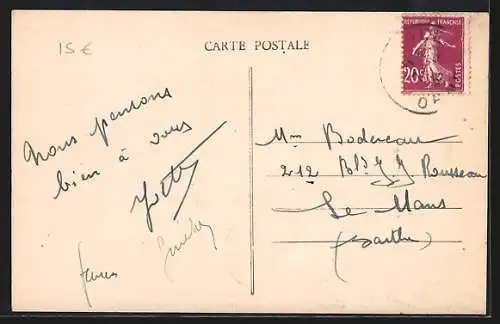 15 €
CARTE POSTALE
REPUBLIQUE FRANÇAISE
20c
POSTES
Nous pensons
bien à vous
Mme Bodereau
212 Bd J J Rousseau
Le Mans
(Sarthe)